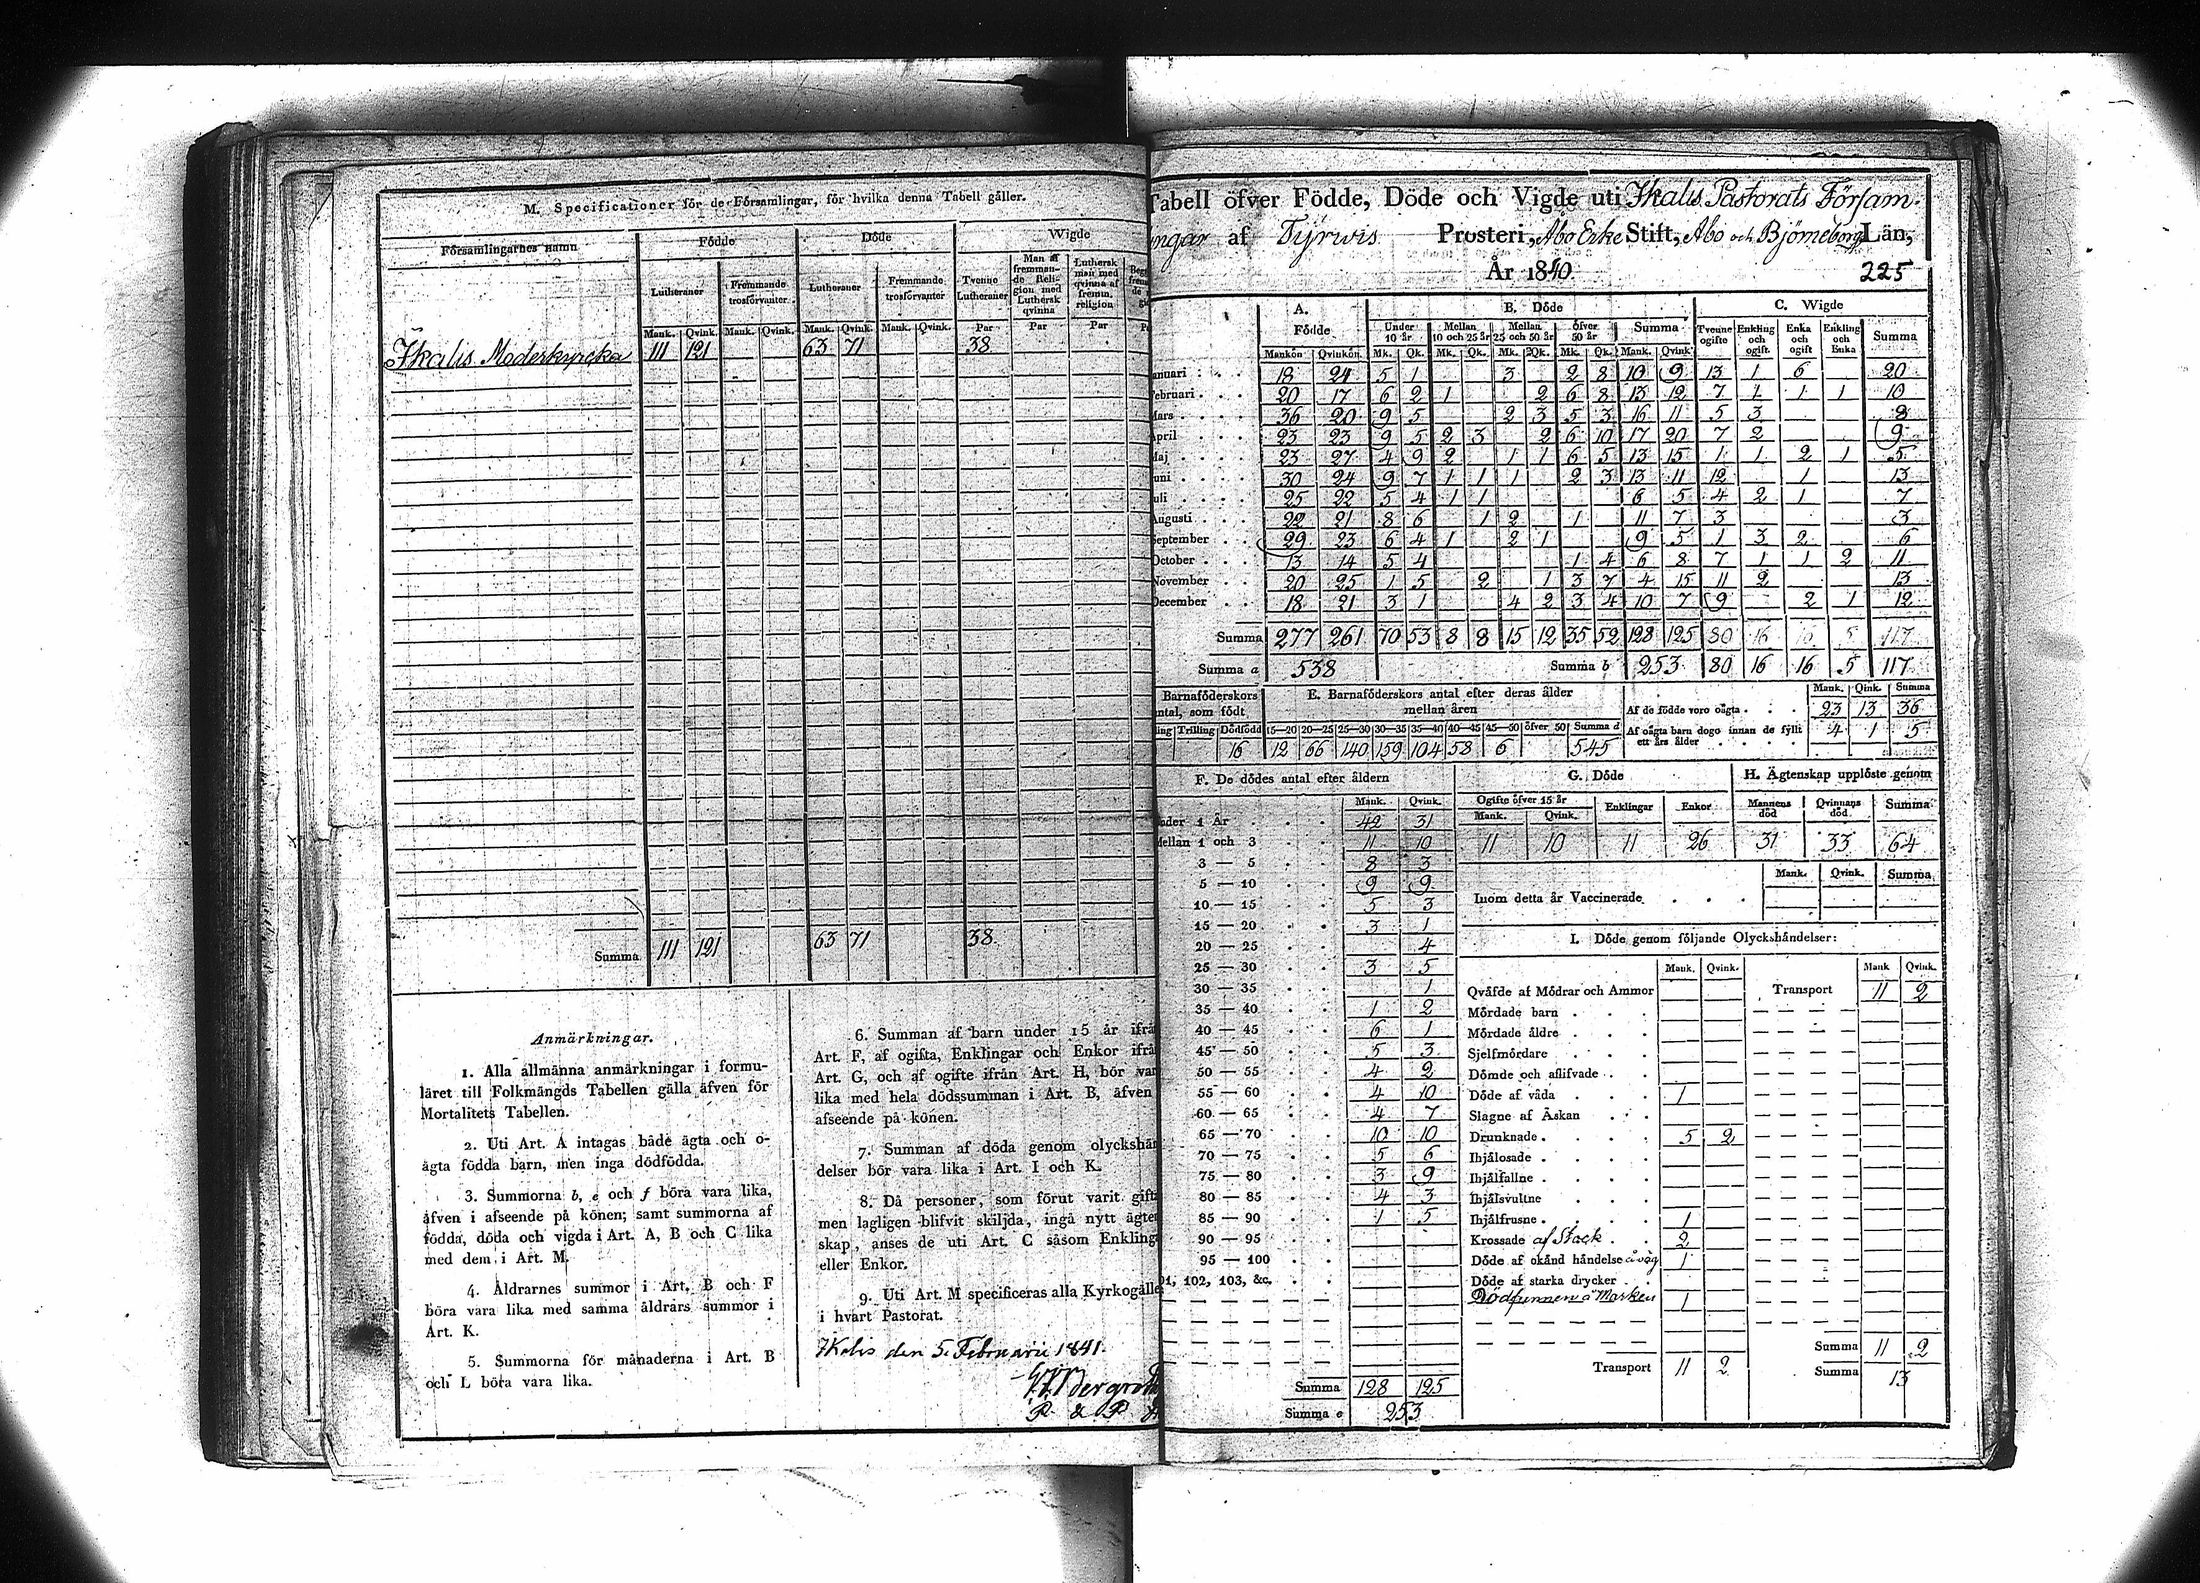 M. Specificationer för de Församlingar, för hvilka denna Tabell gäller.
Församlingarnes namn Födde Döde Wigde
Lutheraner Fremmande trosförvanter Lutheraner Fremmande trosförvanter Tvenne Lutheraner Man af fremmande Religion med Luthersk qvinna Luthersk man med qvinna af fremm. religion
Mank. Qvink. Mank. Qvink. Mank. Qvink. Mank. Qvink. Par Par Par
Ikalis Moderkyrcka 111 121 63 71 38
Summa 111 121 63 71 38
Anmärkningar.
1. Alla allmänna anmärkningar i formu-
läret till Folkmängds Tabellen gälla äfven för
Mortalitets Tabellen.
2. Uti Art. A intagas både ägta och o-
ägta födda barn, men inga dödfödda.
3. Summorna b, e och f böra vara lika,
äfven i afseende på könen; samt summorna af
födda, döda och vigda i Art. A, B och C lika
med dem i Art. M.
4. Åldrarnes summor i Art. B och F
böra vara lika med samma åldrars summor i
Art. K.
5. Summorna för månaderna i Art. B
och L böra vara lika.
6. Summan af barn under 15 år ifrå
Art. F, af ogifta, Enklingar och Enkor ifrå
Art. G, och af ogifte ifrån Art. H, bör var
lika med hela dödssumman i Art. B, äfven
afseende på könen.
7. Summan af döda genom olyckshän
delser bör vara lika i Art. I och K.
8. Då personer, som förut varit gift
men lagligen blifvit skiljda, ingå nytt ägten
skap, anses de uti Art. C såsom Enkling
eller Enkor.
9. Uti Art. M specificeras alla Kyrkogälle
i hvart Pastorat.
Ikalis den 5. Februarii 1841.
Tabell öfver Födde, Döde och Vigde uti Ikalis Pastorats Försam-
ingar af Tyrwis Prosteri, Åbo Erke Stift, Åbo och Björneborgs Län,
År 1840. 225
A. Födde B. Döde C. Wigde
Under 10 år Mellan 10 och 25 år Mellan 25 och 50 år öfver 50 år Summa Tvenne ogifte Enkling och ogift. Enka och ogift Enkling och Enka Summa
Mankön Qvinkön Mk. Qk. Mk. Qk. Mk. Qk. Mk. Qk. Mank. Qvink.
anuari 18 24 5 1 3 2 8 10 9 13 1 6 20
Februari 20 17 6 2 1 2 6 8 13 12 7 1 1 1 10
Mars 36 20 9 5 2 3 5 3 16 11 5 3 8
April 23 23 9 5 2 3 2 6 10 17 20 7 2 9
Maj 23 27 4 9 2 1 1 6 5 13 15 1 1 2 1 5
uni 30 24 9 7 1 1 1 2 3 13 11 12 1 13
uli 25 22 5 4 1 1 6 5 4 2 1 7
Augusti 22 21 8 6 1 2 1 11 7 3 3
September 29 23 6 4 1 2 1 9 5 1 3 2 6
October 13 14 5 4 1 4 6 8 7 1 1 2 11
November 20 25 1 5 2 1 3 7 4 15 11 2 13
December 18 21 3 1 4 2 3 4 10 7 9 2 1 12
Summa 277 261 70 53 8 8 15 12 35 52 128 125 80 16 16 5 117
Summa a 538 Summa b 253 80 16 16 5 117
Barnaföderskors ntal, som födt
ling Trilling Dödfödd
16
E. Barnaföderskors antal efter deras ålder
mellan åren
15—20 20—25 25—30 30—35 35—40 40—45 45—50 öfver 50 Summa d
12 66 140 159 104 58 6 545
Mank. Qink. Summa
Af de födde voro oägta 23 13 36
Af oägta barn dogo innan de fyllt ett års ålder 4 1 5
F. De dödes antal efter åldern
Mank. Qvink.
nder 1 År 42 31
Mellan 1 och 3 11 10
3 — 5 8 3
5 — 10 9 9
10 — 15 5 3
15 — 20 3 1
20 — 25 4
25 — 30 3 5
30 — 35 1
35 — 40 1 2
40 — 45 6 1
45 — 50 5 3
50 — 55 4 2
55 — 60 4 10
60 — 65 4 7
65 — 70 10 10
70 — 75 5 6
75 — 80 3 9
80 — 85 4 3
85 — 90 1 5
90 — 95
95 — 100
01, 102, 103, &c.
Summa 128 125
Summa e 253
G. Döde
Ogifte öfver 15 år Enklingar Enkor
Mank. Qvink.
11 10 11 26
H. Ägtenskap upplöste genom
Mannens död Qvinnans död Summa
31 33 64
Mank. Qvink. Summa
Inom detta år Vaccinerade
I. Döde genom följande Olyckshändelser:
Mank. Qvink. Mank Qvink.
Qväfde af Mödrar och Ammor Transport 11 2
Mördade barn
Mördade äldre
Sjelfmördare
Dömde och aflifvade
Döde af våda 1
Slagne af Åskan
Drunknade 5 2
Ihjälosade
Ihjälfallne
Ihjälsvultne
Ihjälfrusne 1
Krossade af Stock 2
Döde af okänd händelse å väg 1
Döde af starka drycker
Dödfunnen å Marken 1
Summa 11 2
Transport 11 2 Summa 13